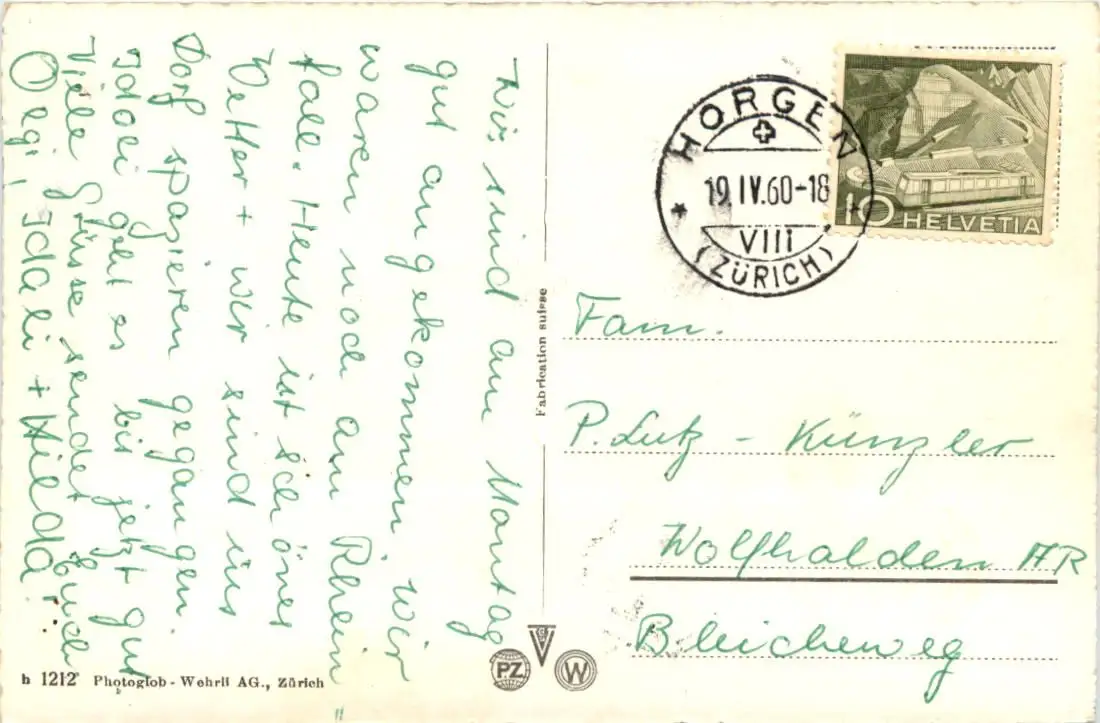 Wir sind am Montag
gut angekommen wir
waren noch am Rhein
fall. Heute ist schönes
Wetter + wir sind ins
Dorf spazieren gegangen.
Idali geht es bis jetzt gut
Viele Grüsse sendet Euch
Oegi, Idali + Hilda
HORGEN
19.IV.60-18
VIII
(ZÜRICH)
10 HELVETIA
Fabrication suisse
Fam.
P. Lutz - Künzler
Wolfhalden AR
Bleicheweg
PZ
W
h 1212 Photoglob-Wehrli AG., Zürich